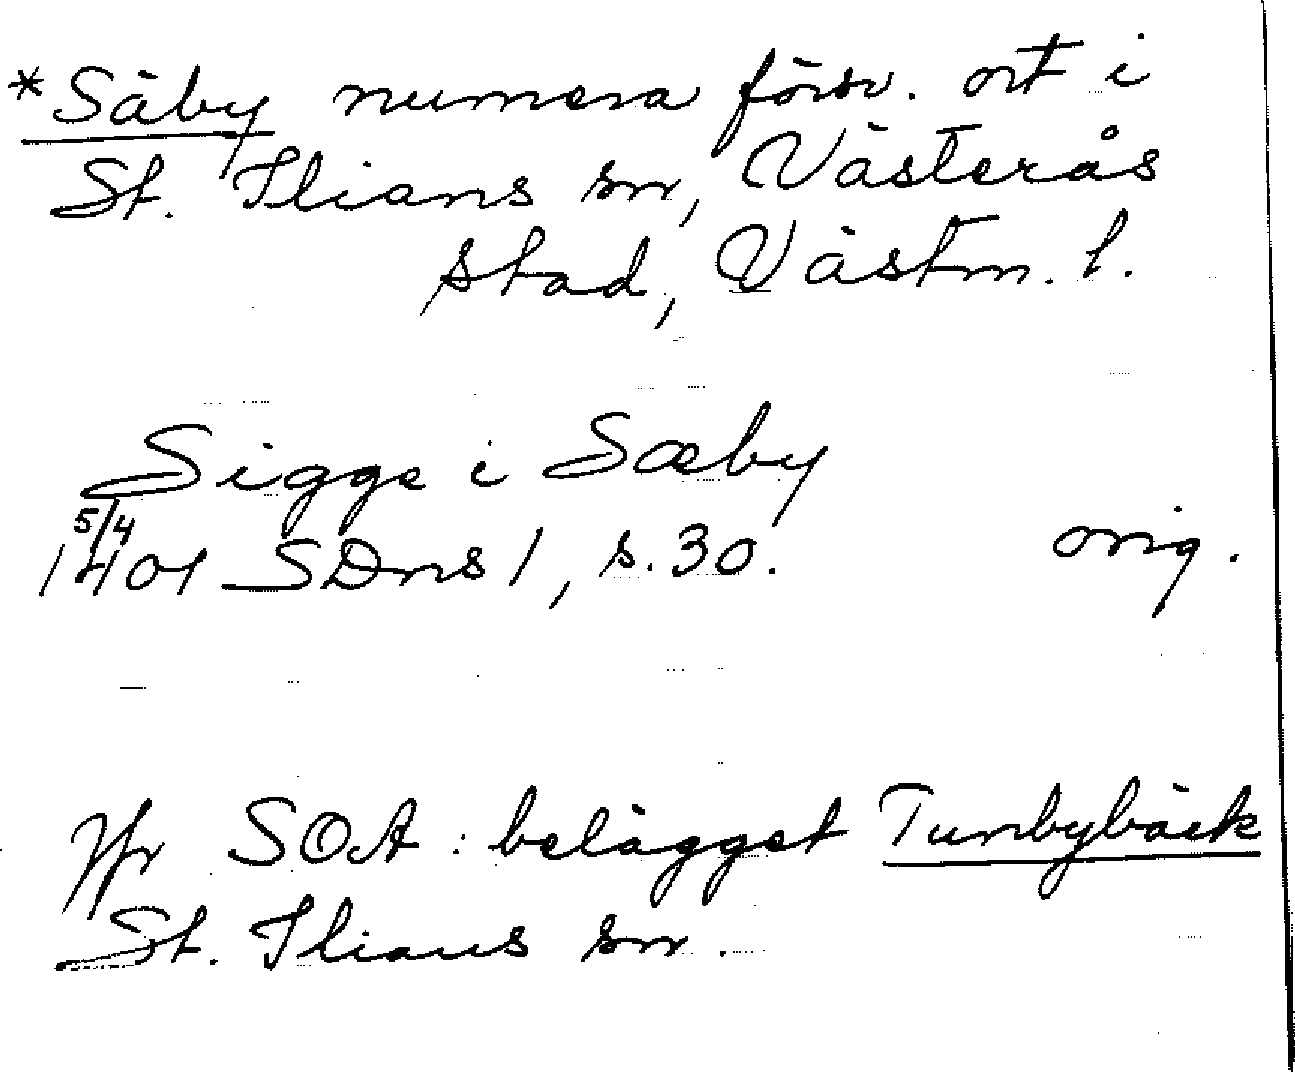 *Säby numera försv. ort i
St. Ilians sn, Västerås
stad, Västm. l.
Sigge i Sæby
5/4
1401 SDns 1, s. 30. orig.
Jfr SOA: belägget Tunbybäck
St. Ilians sn.